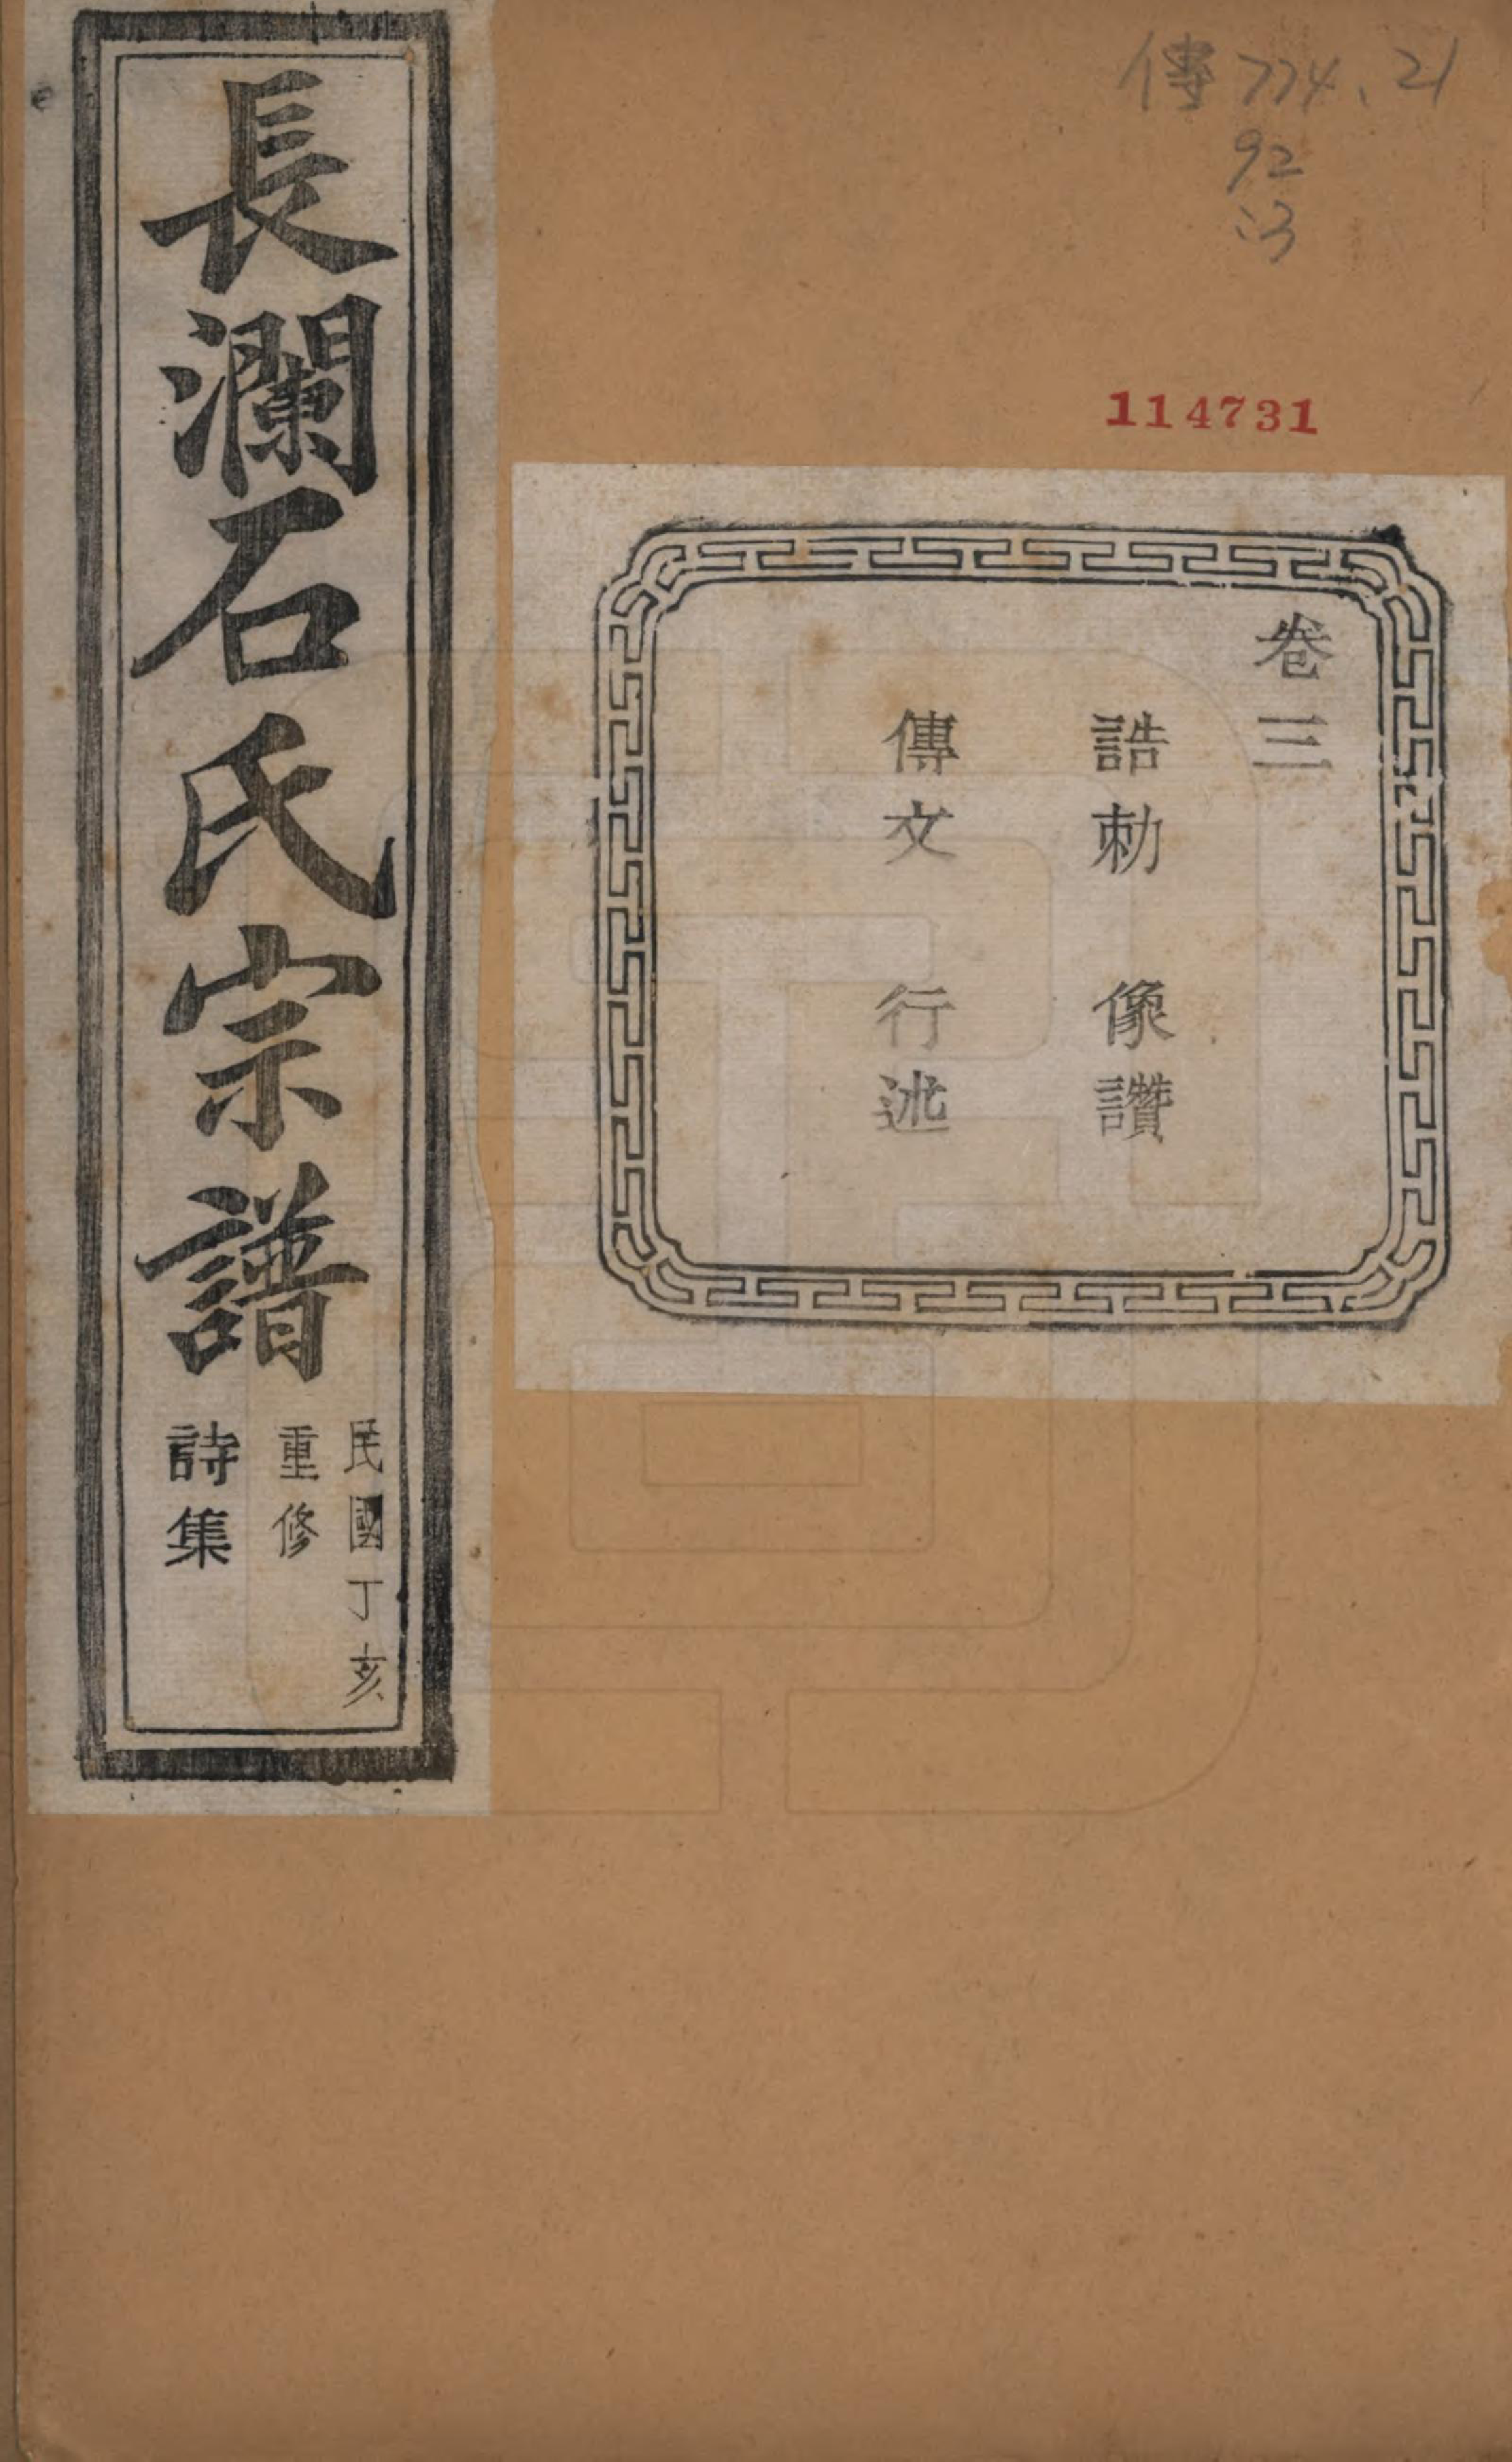 傳 774.21
92
:3
114731
卷三
誥勅　像讚
傳文　行述
長瀾石氏宗譜
民國丁亥
重修
詩集